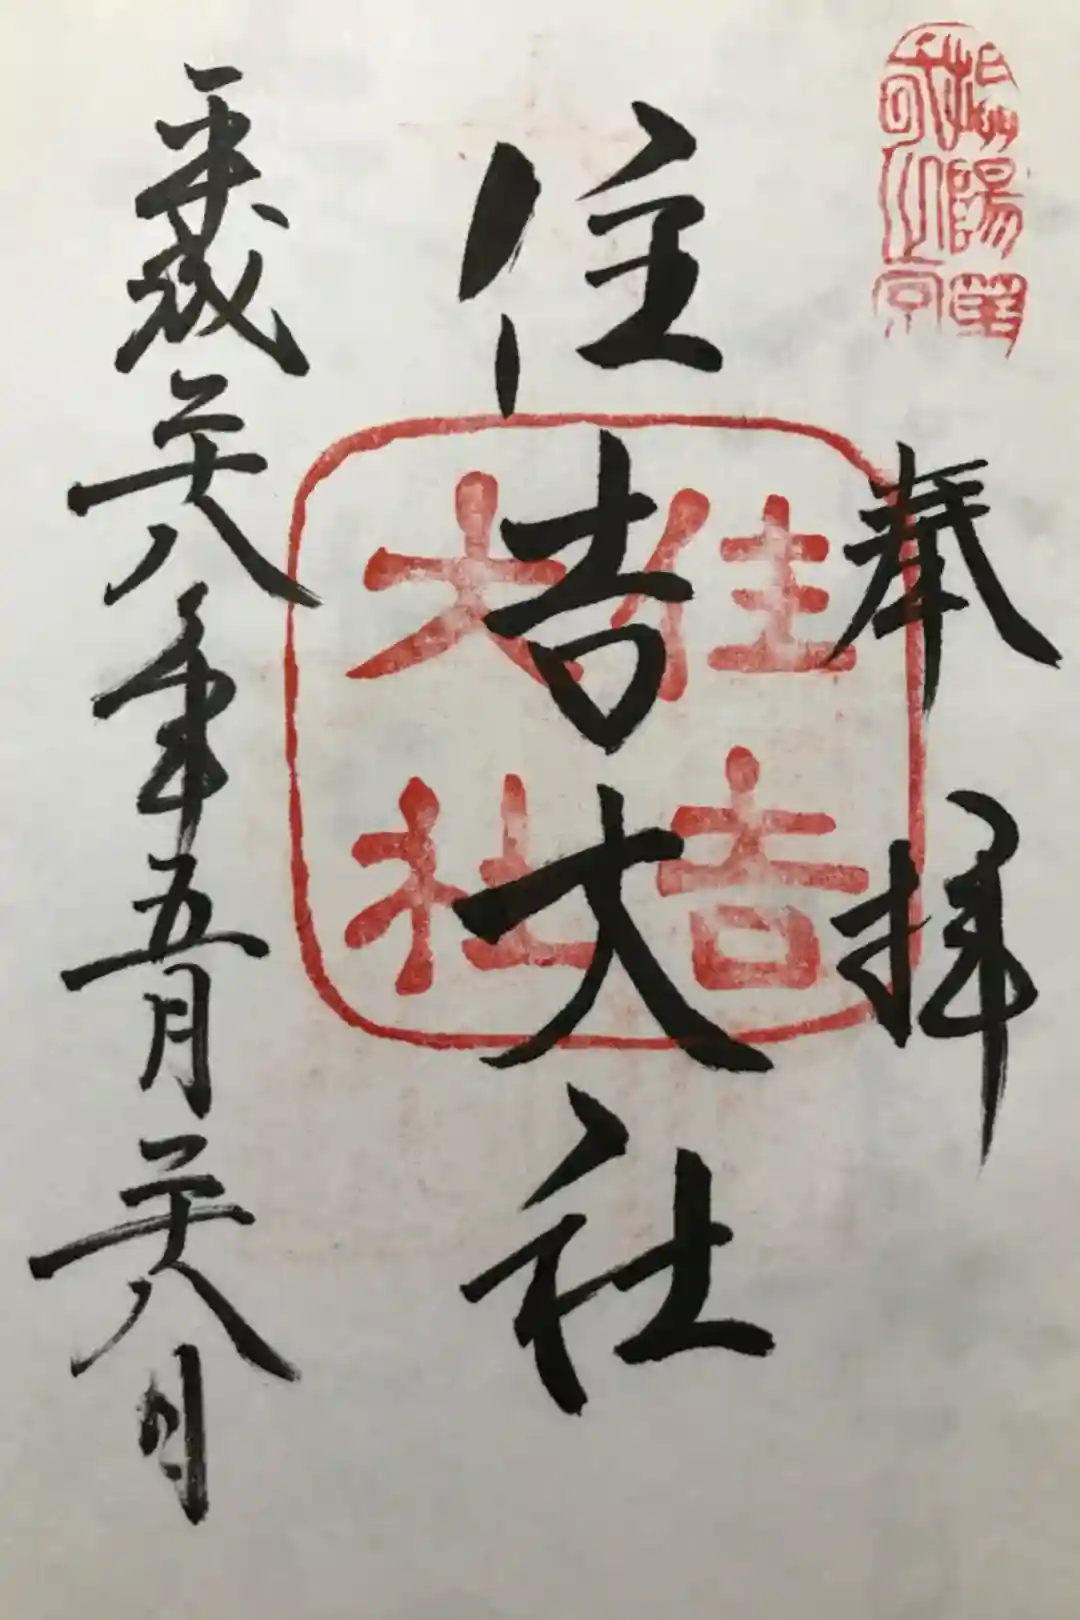 奉拝
住吉大社
住吉
大社
平成二十八年五月二十八日